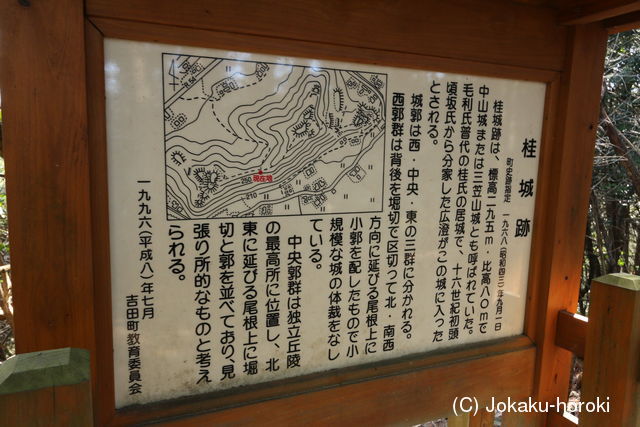 桂城跡
町史跡指定 一九六八(昭和四三)年九月一日
桂城跡は、標高二九五m・比高八〇mで
中山城または三笠山城とも呼ばれていた。
毛利氏普代の桂氏の居城で、十六世紀初頭
頃坂氏から分家した広澄がこの城に入った
とされる。
城郭は西・中央・東の三群に分かれる。
西郭群は背後を堀切で区切って北・南西
方向に延びる尾根上に
小郭を配したもので小
規模な城の体裁をなし
ている。
中央郭群は独立丘陵
の最高所に位置し、北
東に延びる尾根上に堀
切と郭を並べており、見
張り所的なものと考え
られる。
一九九六(平成八)年七月
吉田町教育委員会
現在地
250
210
(C) Jokaku-horoki